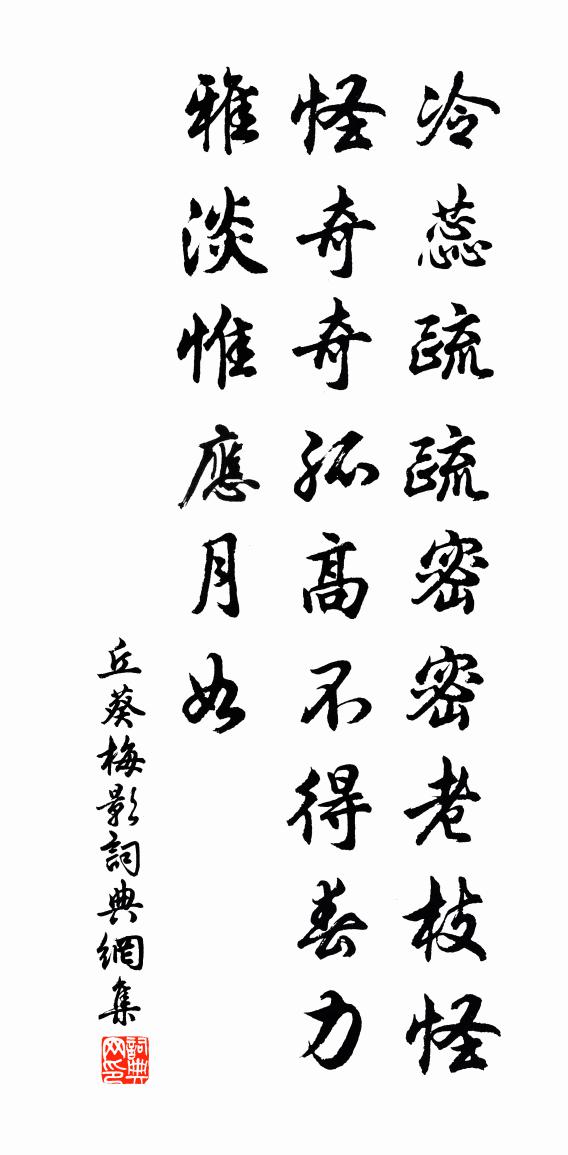 冷蕊疏疏密密老枝怪
怪奇奇孤高不得春力
雅淡惟應月如
丘葵梅影詞典網集
詞典网印